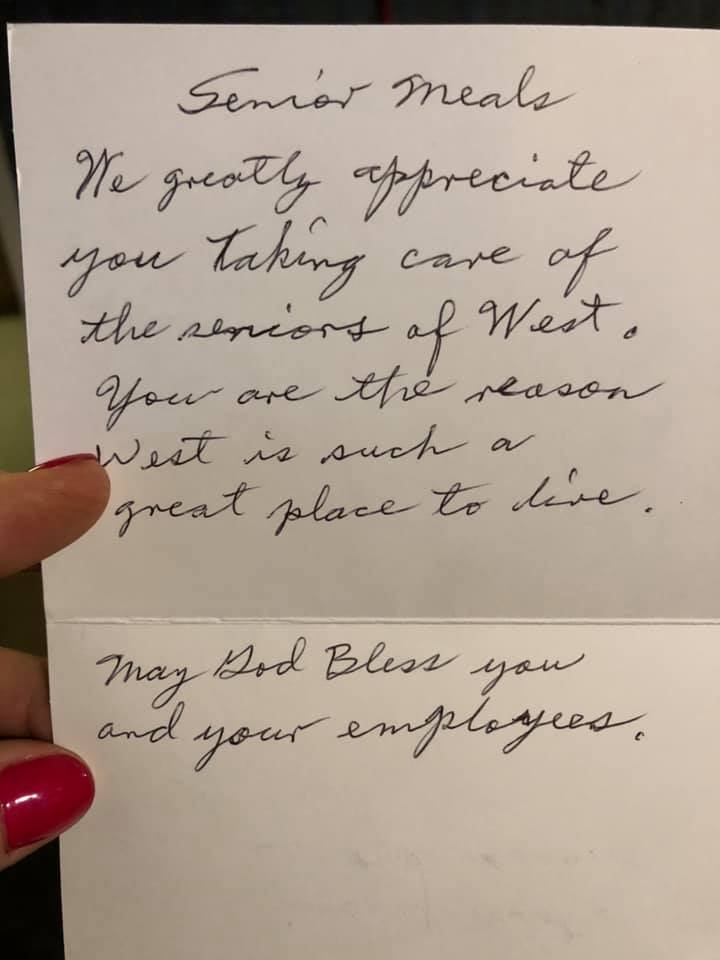 Senior Meals
We greatly appreciate
you taking care of
the seniors of West.
You are the reason
West is such a
great place to live.
May God Bless you
and your employees.